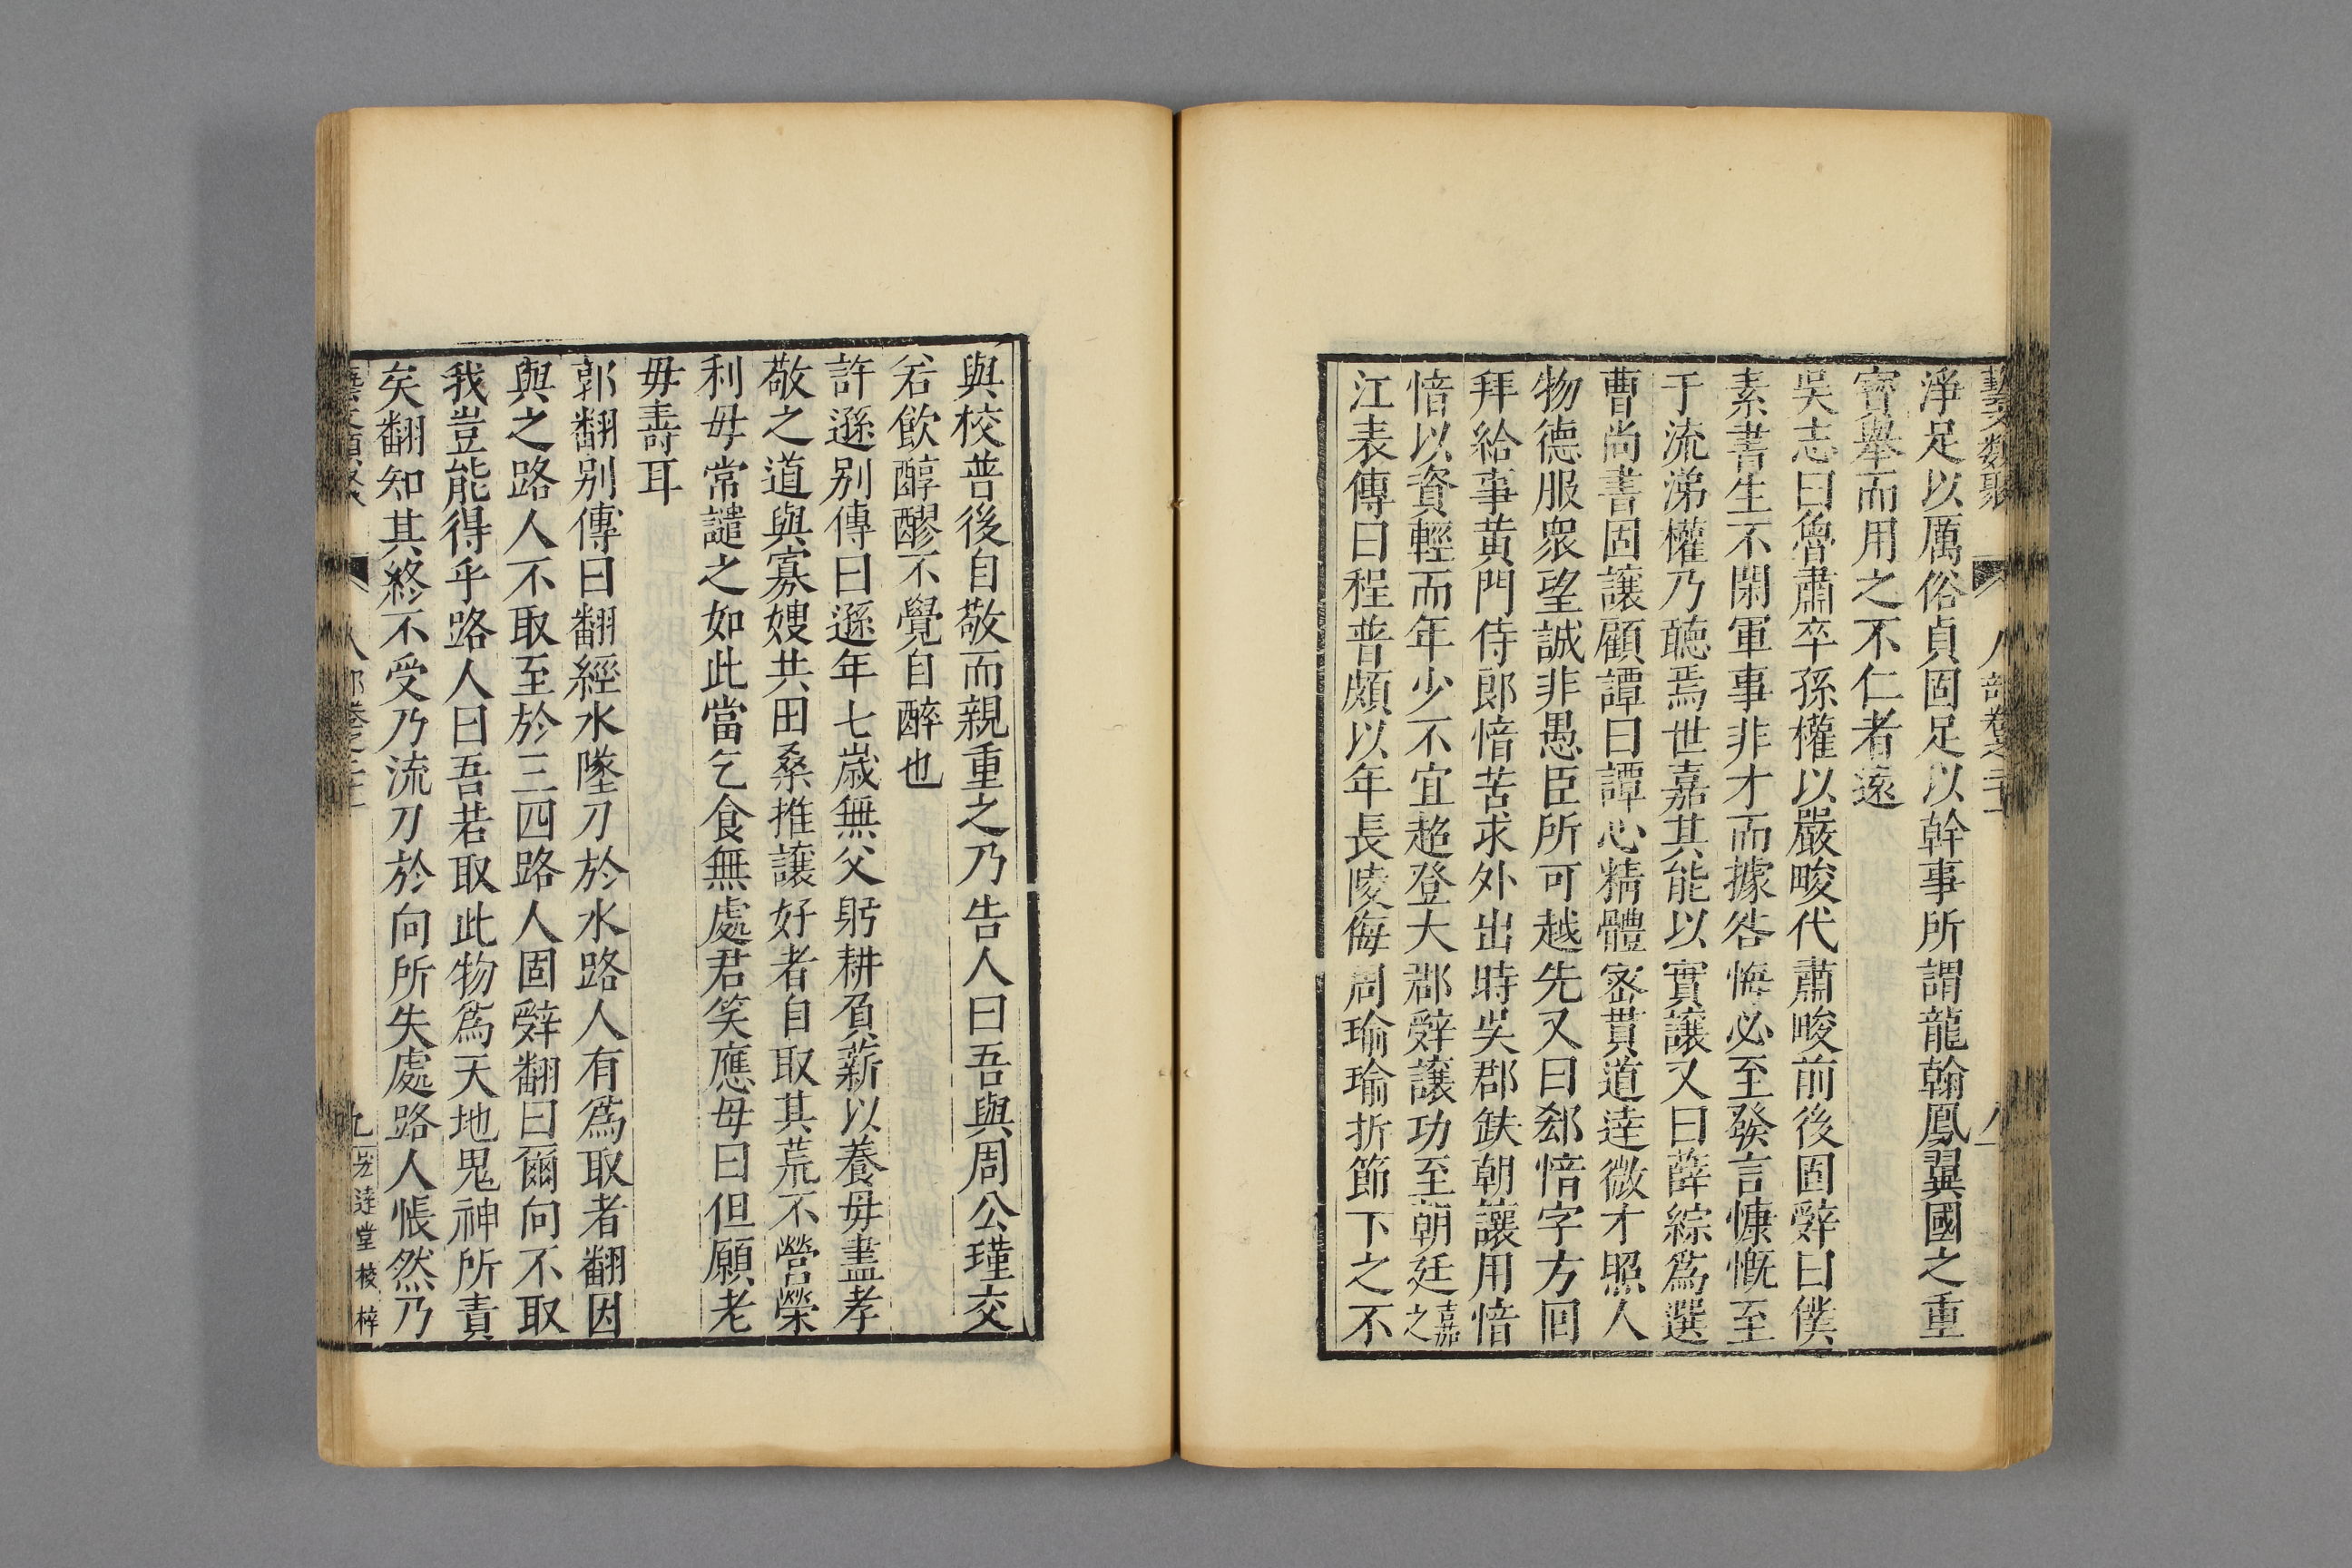 藝文類聚 人部卷之二十一 八
淨足以厲俗貞固足以幹事所謂龍翰鳳翼國之重
寶舉而用之不仁者遠
吳志曰魯肅卒孫權以嚴畯代肅畯前後固辭曰僕
素書生不閑軍事非才而據咎悔必至發言慷慨至
于流涕權乃聽焉世嘉其能以實讓又曰薛綜爲選
曹尚書固讓顧譚曰譚心精體密貫道達微才照人
物德服衆望誠非愚臣所可越先又曰郄愔字方回
拜給事黃門侍郎愔苦求外出時吳郡缺朝議用愔
愔以資輕而年少不宜超登大郡辭讓功至朝廷嘉之
江表傳曰程普頗以年長陵侮周瑜瑜折節下之不
與校普後自敬而親重之乃告人曰吾與周公瑾交
若飲醇醪不覺自醉也
許遜别傳曰遜年七歲無父躬耕負薪以養母盡孝
敬之道與寡嫂共田桑推讓好者自取其荒不營榮
利母常譴之如此當乞食無處君笑應母曰但願老
母壽耳
郭翻别傳曰翻經水墜刀於水路人有爲取者翻因
與之路人不取至於三四路人固辭翻曰爾向不取
我豈能得乎路人曰吾若取此物爲天地鬼神所責
矣翻知其終不受乃流刀於向所失處路人悵然乃
藝文類聚 人部卷之二十一 九 宏達堂校梓